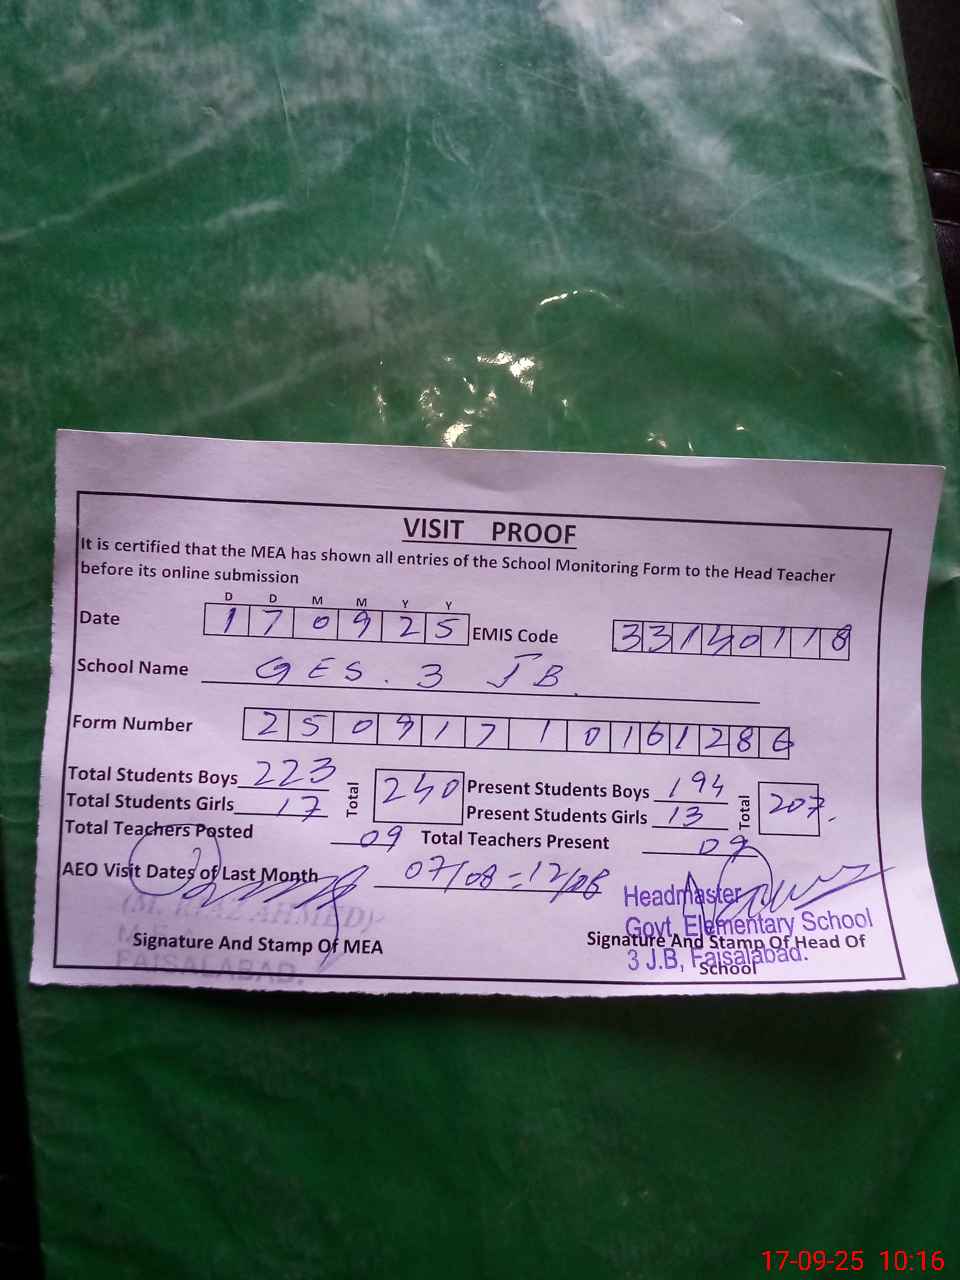 VISIT PROOF
It is certified that the MEA has shown all entries of the School Monitoring Form to the Head Teacher
before its online submission
D D M M Y Y
Date 1 7 0 9 2 5 EMIS Code 3 3 1 4 0 1 1 8
School Name GES. 3 JB.
Form Number 2 5 0 9 1 7 1 0 1 6 1 2 8 6
Total Students Boys 223 Total 240 Present Students Boys 194 Total 207.
Total Students Girls 17 Present Students Girls 13
Total Teachers Posted 09 Total Teachers Present 09
AEO Visit Dates of Last Month 07/08 - 12/08
Headmaster
Govt. Elementary School
3 J.B, Faisalabad.
(M. RIAZ AHMED)
FAISALABAD.
Signature And Stamp Of MEA
Signature And Stamp Of Head Of
School
17-09-25 10:16